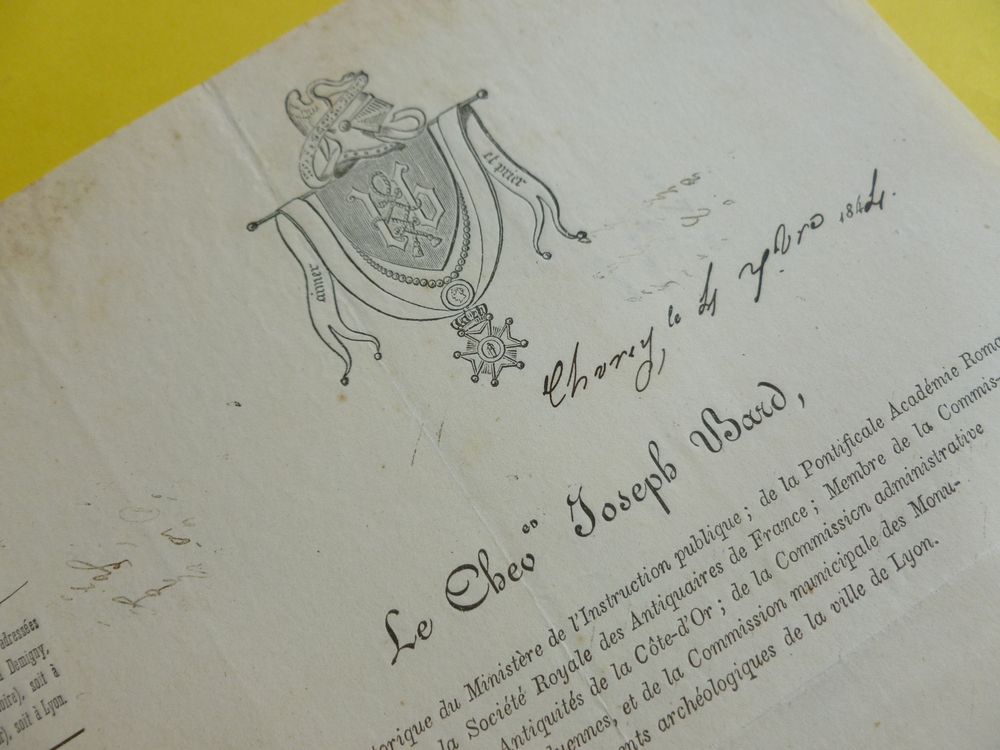 aimer
et prier
Chorey, le 4 7bre 1844.
Le Cheer Joseph Bard,
orique du Ministère de l'Instruction publique; de la Pontificale Académie Roma
la Société Royale des Antiquaires de France; Membre de la Commis-
Antiquités de la Côte-d'Or; de la Commission administrative
uennes, et de la Commission municipale des Monu-
nts archéologiques de la ville de Lyon.
adressées
Demigny,
soit à
soit à Lyon.